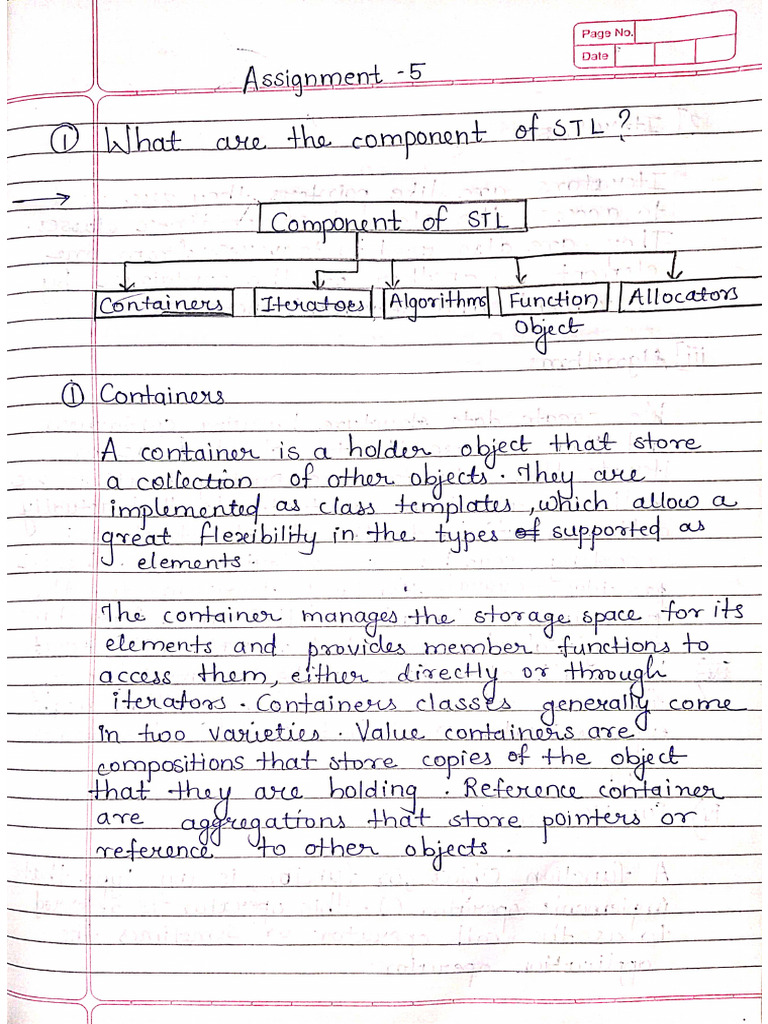 Page No.
Date
Assignment - 5
① What are the component of STL?
Component of STL
Containers Iterators Algorithms Function Allocators
Object
① Containers
A container is a holder object that store
a collection of other objects. They are
implemented as class templates, which allow a
great flexibility in the types of supported as
elements.
The container manages the storage space for its
elements and provides member functions to
access them, either directly or through
iterators. Containers classes generally come
in two varieties. Value containers are
compositions that store copies of the object
that they are holding. Reference container
are aggregations that store pointers or
reference to other objects.